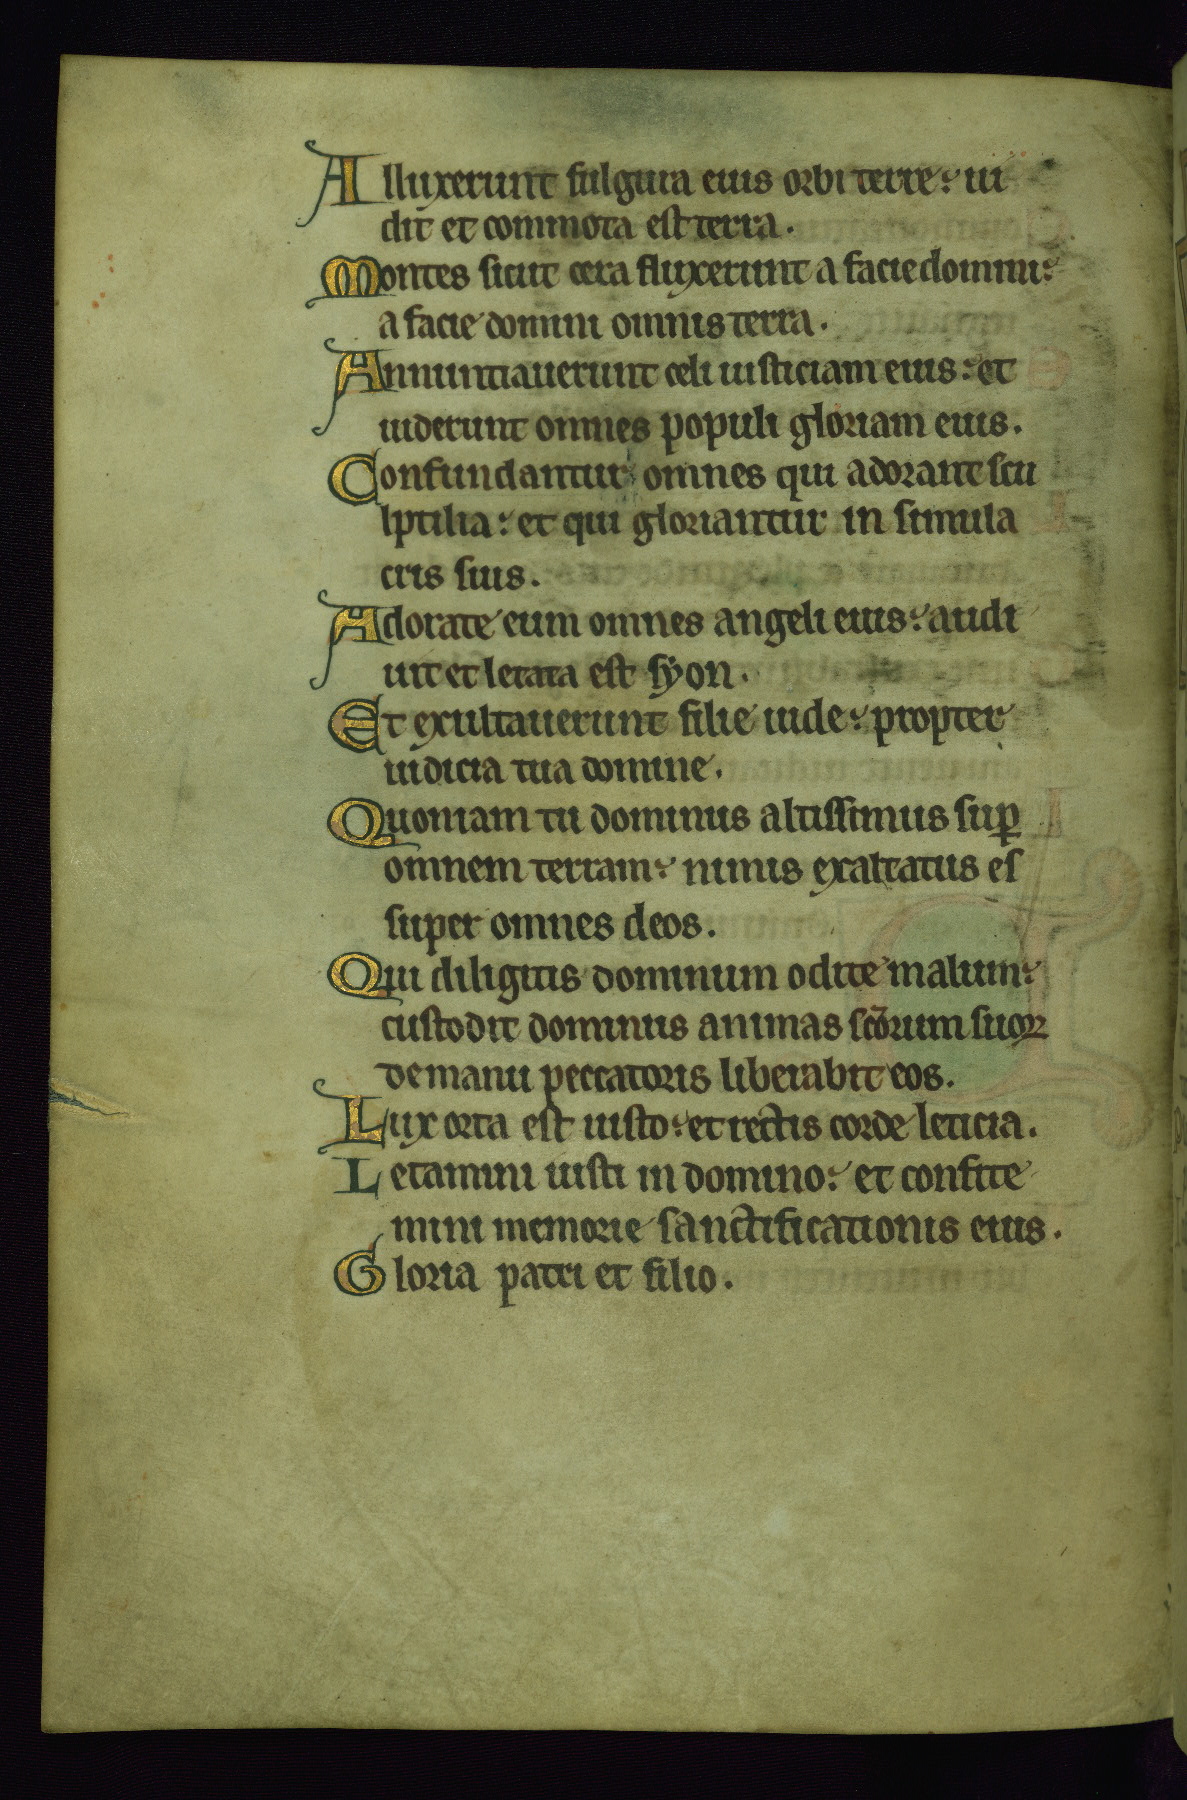 Alluxerunt fulgura eius orbi terre: ui
dit et commota est terra.
Montes sicut cera fluxerunt a facie domini:
a facie domini omnis terra.
Annuntiauerunt celi iusticiam eius: et
uiderunt omnes populi gloriam eius.
Confundantur omnes qui adorant scu
lptilia: et qui gloriantur in simula
cris suis.
Adorate eum omnes angeli eius: audi
uit et letata est syon.
Et exultauerunt filie iude: propter
iudicia tua domine.
Quoniam tu dominus altissimus sup̱
omnem terram: nimis exaltatus es
super omnes deos.
Qui diligitis dominum odite malum:
custodit dominus animas sc̄orum suoꝝ
de manu peccatoris liberabit eos.
Lux orta est iusto: et rectis corde leticia.
Letamini iusti in domino: et confite
mini memorie sanctificationis eius.
Gloria patri et filio.